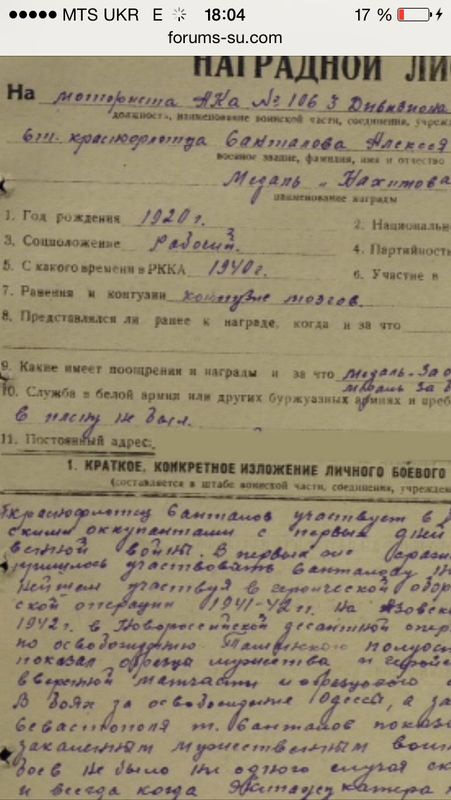 MTS UKR E 18:04 17 %
forums-su.com
НАГРАДНОЙ ЛИС
На моториста АКа № 106 3 Дивизиона
должность, наименование воинской части, соединения, учрежд
ст. краснофлотца Санталова Алексея
военное звание, фамилия, имя и отчество
Медаль „Нахимова
наименование награды
1. Год рождения 1920 г.
2. Националь
3. Соцположение рабочий
4. Партийность
5. С какого времени в РККА 1940 г.
6. Участие в
7. Ранения и контузии контузия мозгов.
8. Представлялся ли ранее к награде, когда и за что
9. Какие имеет поощрения и награды и за что медаль-За о
медаль За б
10. Служба в белой армии или других буржуазных армиях и преб
в плену не был.
11. Постоянный адрес:
1. КРАТКОЕ, КОНКРЕТНОЕ ИЗЛОЖЕНИЕ ЛИЧНОГО БОЕВОГО
(составляется в штабе воинской части, соединения, учрежден
краснофлотец Санталов участвует в
скими оккупантами с первых дней
венной войны. В первых же сраже
пришлось участвовать Санталову
нейшем участвуя в героической обор
ской операции 1941-42 гг. На Азовск
1942 г. в Новороссийской десантной опер
по освобождению Таманского полуос
показал образцы мужества и герой
вверенной матчасти и образцового
В боях за освобождение Одессы, а за
Севастополя т. Санталов показа
закаленным мужественным вои
боев не было ни одного случая ск
и всегда когда экипажу катера